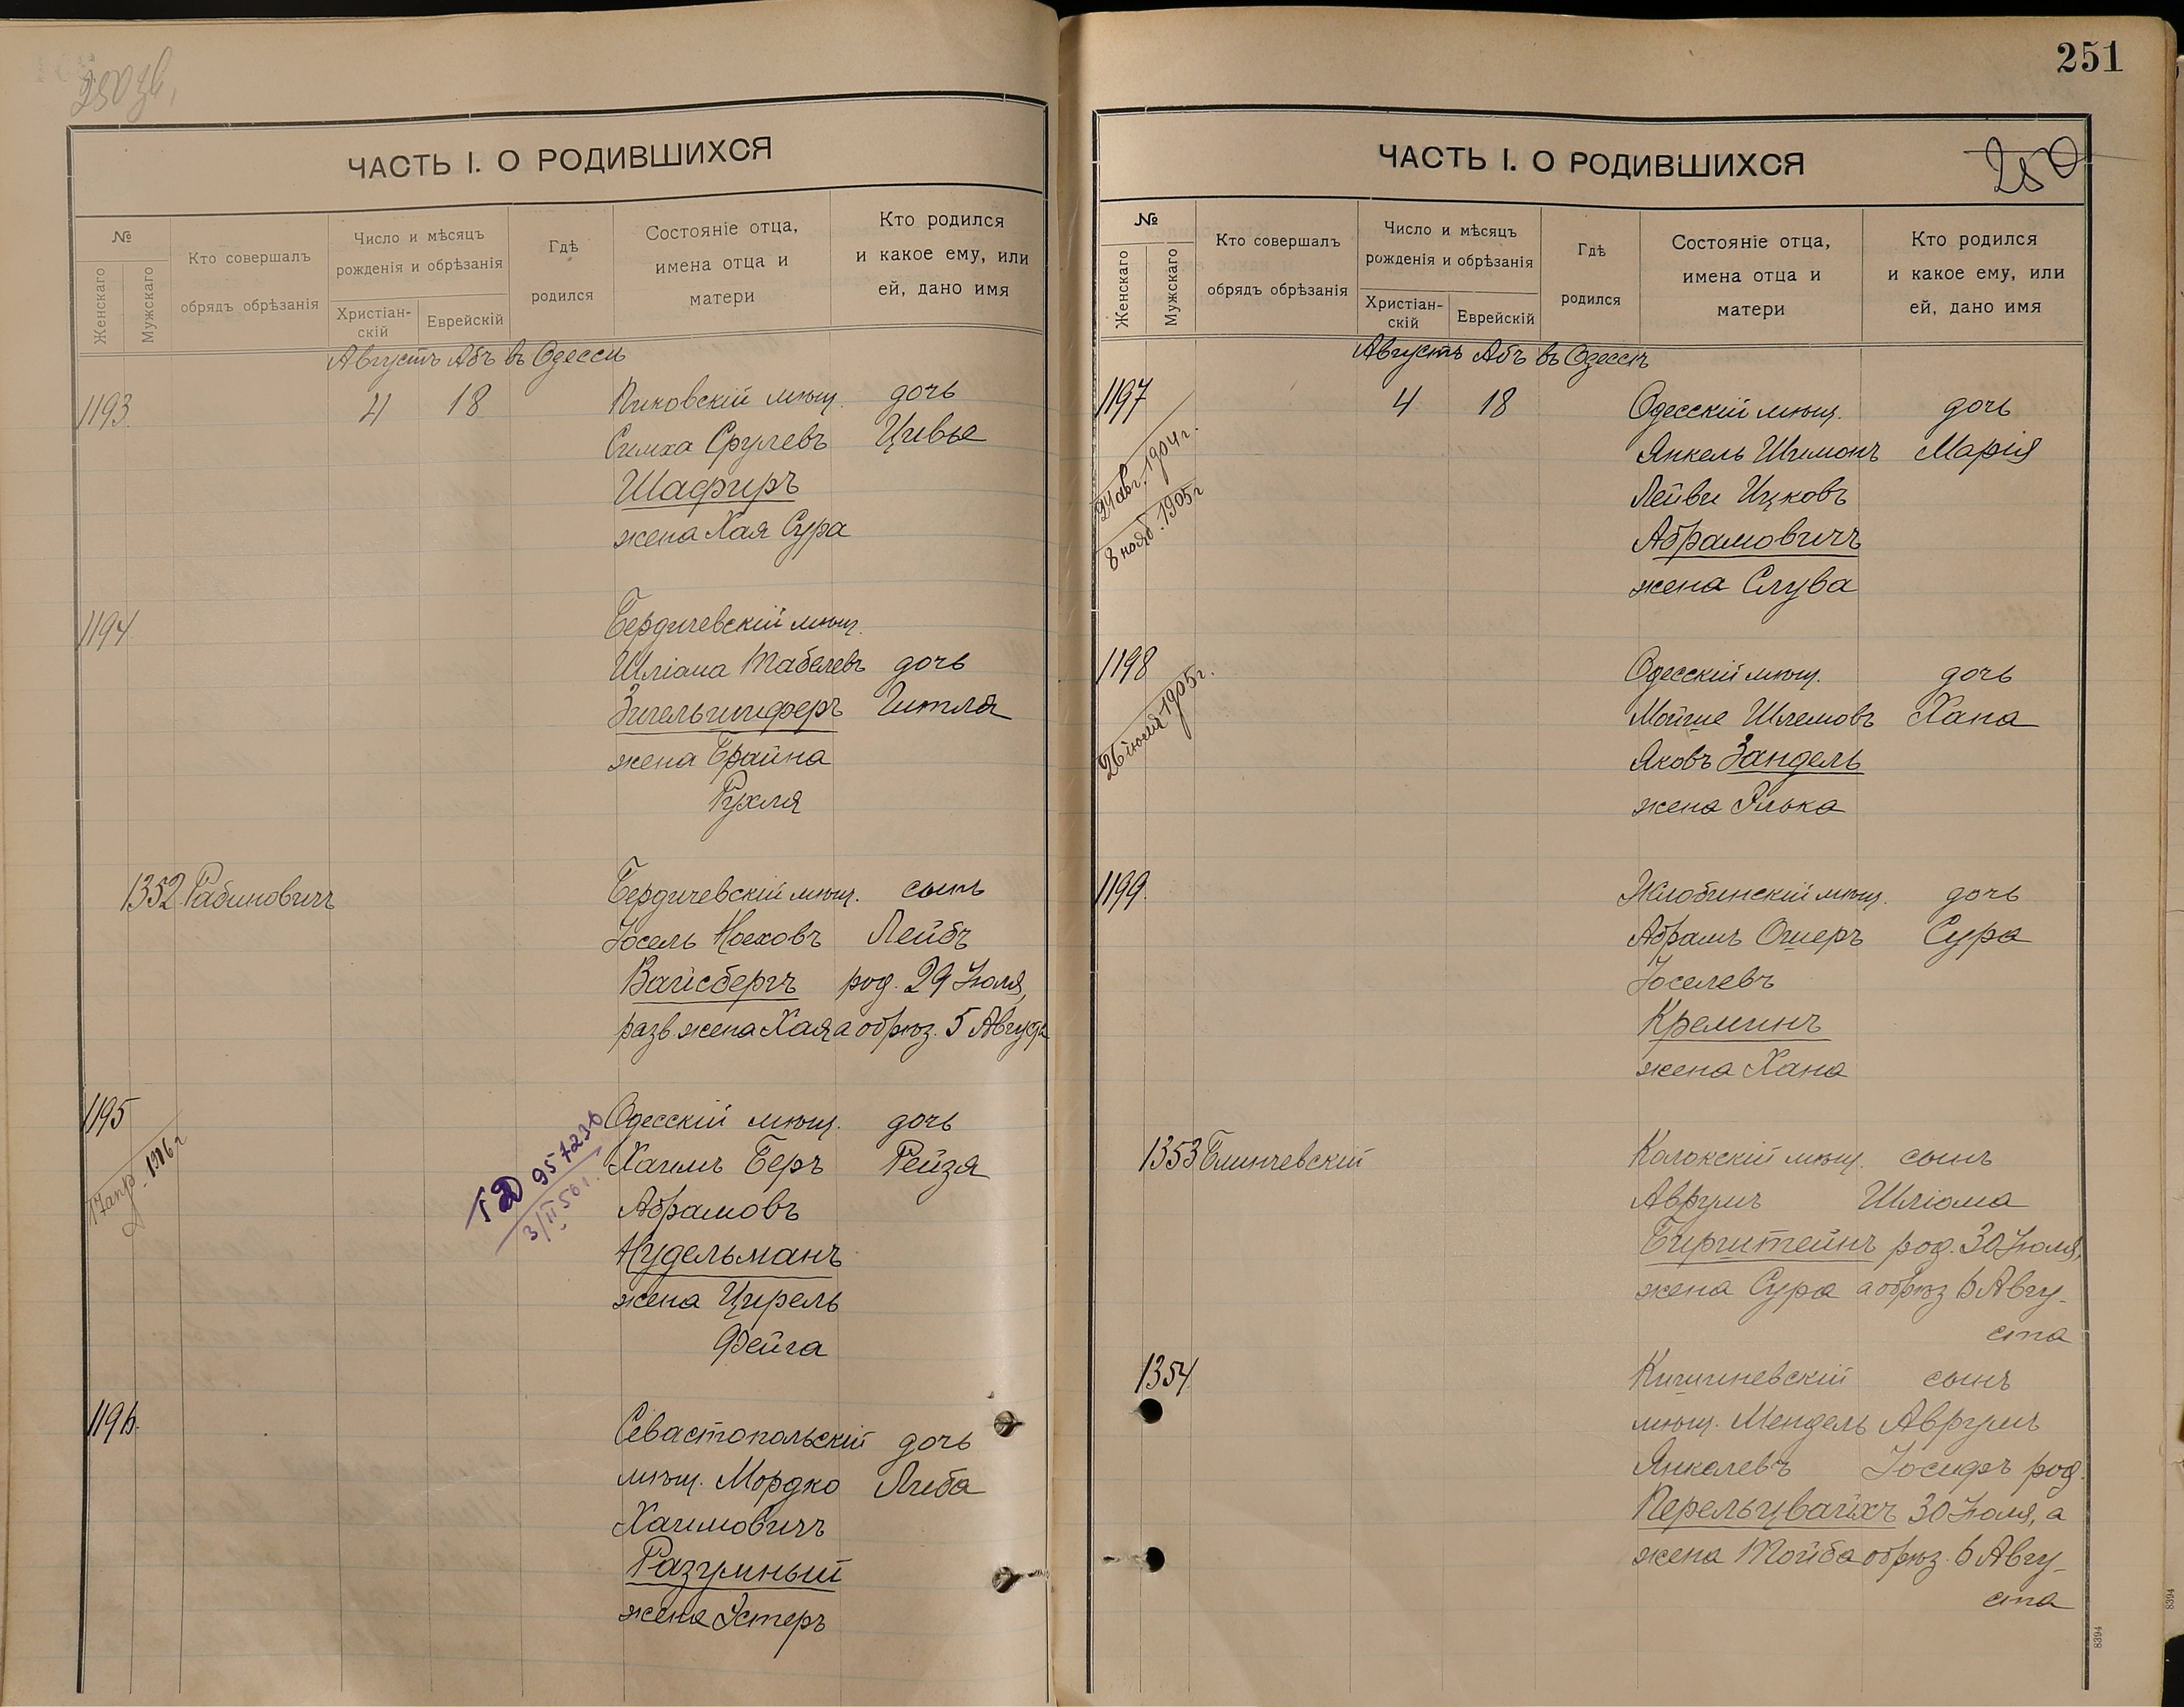 250 зв.
ЧАСТЬ I. О РОДИВШИХСЯ
№
Женскаго
Мужскаго
Кто совершалъ
обрядъ обрѣзанія
Число и мѣсяцъ
рожденія и обрѣзанія
Христіан-
скій
Еврейскій
Гдѣ
родился
Состояніе отца,
имена отца и
матери
Кто родился
и какое ему, или
ей, дано имя
Августъ Абъ въ Одессѣ
1193. 4 18 Пиковскій мѣщ. дочь
Симха Срулевъ Цивье
Шафиръ
жена Хая Сура
1194 Бердичевскій мѣщ.
Шліома Табелевъ дочь
Зигельшиферъ Гитля
жена Брайна
Рухля
1352 Рабиновичъ Бердичевскій мѣщ. сынъ
Іосель Ноеховъ Лейбъ
Вайсбергъ род. 29 Іюля,
разв жена Хая а обрѣз. 5 Августа
1195 Одесскій мѣщ. дочь
17 апр. 1916 г
957230
3/II 56 г.
Хаимъ Беръ Рейзя
Абрамовъ
Нудельманъ
жена Цирель
Фейга
1196. Севастопольскій дочь
мѣщ. Мордко Либа
Хаимовичъ
Разумный
жена Эстеръ
251
250
ЧАСТЬ I. О РОДИВШИХСЯ
№
Женскаго
Мужскаго
Кто совершалъ
обрядъ обрѣзанія
Число и мѣсяцъ
рожденія и обрѣзанія
Христіан-
скій
Еврейскій
Гдѣ
родился
Состояніе отца,
имена отца и
матери
Кто родился
и какое ему, или
ей, дано имя
Августъ Абъ въ Одессѣ
1197 4 18 Одесскій мѣщ. дочь
24 авг. 1904 г.
8 нояб. 1905 г
Янкель Шимонъ Марія
Лейви Ицковъ
Абрамовичъ
жена Слува
1198 Одесскій мѣщ. дочь
26 іюля 1905 г.
Мойше Шлемовъ Хана
Яковъ Зандель
жена Элька
1199. Жлобинскій мѣщ. дочь
Абрамъ Ошеръ Сура
Іоселевъ
Креминъ
жена Хана
1353 Блинчевскій Колокскій мѣщ. сынъ
Аврумъ Шліома
Бирштейнъ род. 30 Іюля,
жена Сура а обрѣз 6 Авгу-
ста
1354 Кишиневскій сынъ
мѣщ. Мендель Аврумъ
Янкелевъ Іосифъ род.
Перельцвайхъ 30 Іюля, а
жена Тойба обрѣз. 6 Авгу-
ста
8394
8394